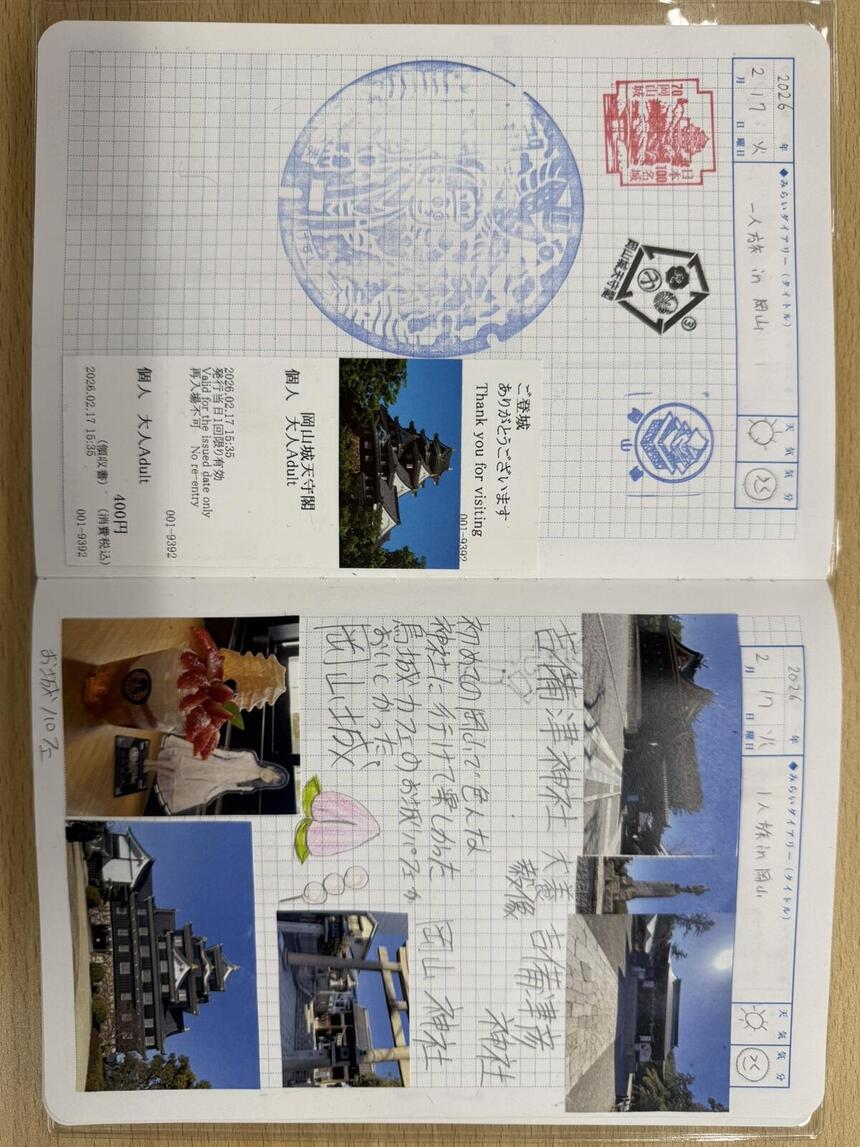 2026年
2月17日火曜日
◆みらいダイアリー(タイトル)
一人旅 in 岡山
天気
気分
70
岡山城
日本100名城
岡山城天守閣
③
ご登城
ありがとうございます
Thank you for visiting
001-9392
岡山城天守閣
個人 大人Adult
2026.02.17 15:35
発行当日1回限り有効
Valid for the issued date only
再入場不可 No re-entry
001-9392
個人 大人Adult
400円
(領収書) (消費税込)
2026.02.17 15:35
001-9392
2026年
2月17日火曜日
◆みらいダイアリー(タイトル)
1人旅in岡山
天気
気分
吉備津神社
犬養毅像
吉備津彦神社
初めての岡山で色んな
神社に行けて楽しかった
烏城カフェのお城パフェが
おいしかった。
岡山神社
岡山城
お城パフェ